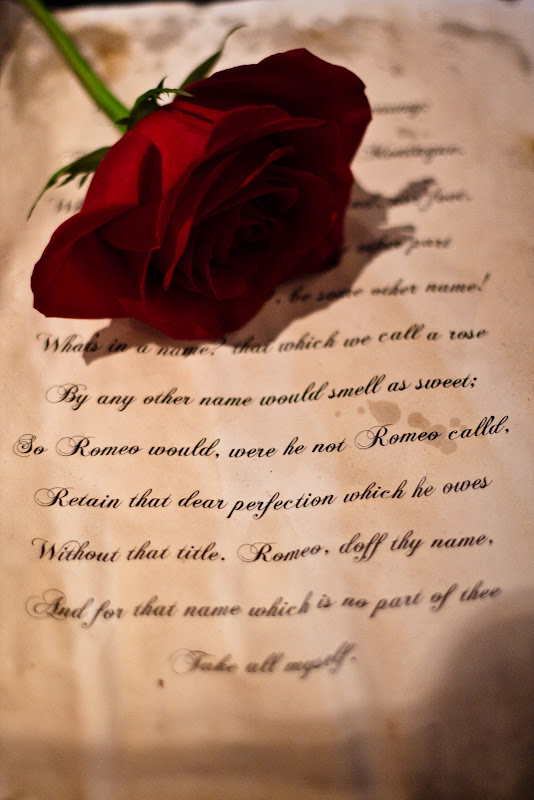 Montague.
nor foot,
other part
, be some other name!
What's in a name? that which we call a rose
By any other name would smell as sweet;
So Romeo would, were he not Romeo call'd,
Retain that dear perfection which he owes
Without that title. Romeo, doff thy name,
And for that name which is no part of thee
Take all myself.